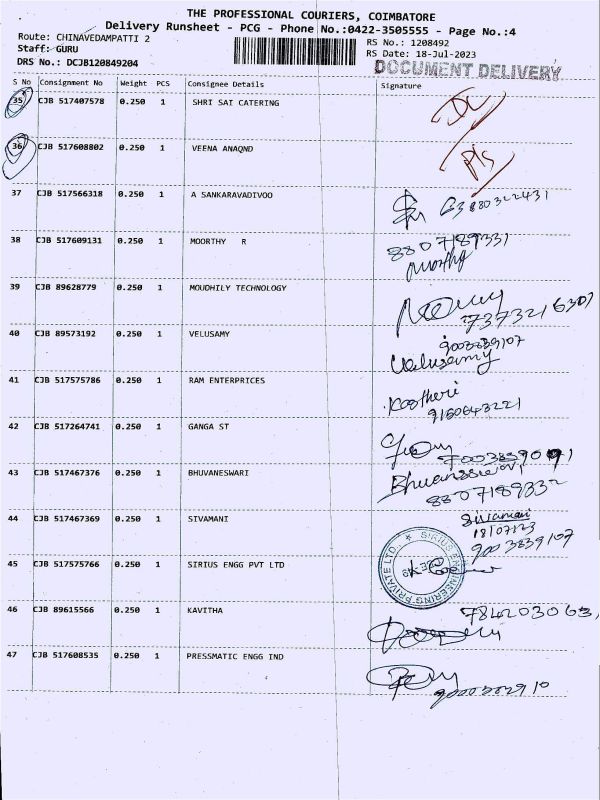 THE PROFESSIONAL COURIERS, COIMBATORE
Delivery Runsheet - PCG - Phone No.:0422-3505555 - Page No.:4
Route: CHINAVEDAMPATTI 2 RS No.: 1208492
Staff: GURU RS Date: 18-Jul-2023
DRS No.: DCJB120849204 DOCUMENT DELIVERY
S No Consignment No Weight PCS Consignee Details Signature
35 CJB 517407578 0.250 1 SHRI SAI CATERING DL
36 CJB 517608802 0.250 1 VEENA ANAQND P/s
37 CJB 517566318 0.250 1 A SANKARAVADIVOO 6380322431
38 CJB 517609131 0.250 1 MOORTHY R 8807189331
Moorthy
39 CJB 89628779 0.250 1 MOUDHILY TECHNOLOGY
7373216307
40 CJB 89573192 0.250 1 VELUSAMY 9003839107
Velusamy
41 CJB 517575786 0.250 1 RAM ENTERPRICES
9150643221
42 CJB 517264741 0.250 1 GANGA ST
43 CJB 517467376 0.250 1 BHUVANESWARI
8807189332
44 CJB 517467369 0.250 1 SIVAMANI Sivamani
18/07/23
9003839107
45 CJB 517575766 0.250 1 SIRIUS ENGG PVT LTD SIRIUS ENGINEERING PRIVATE LTD.
46 CJB 89615566 0.250 1 KAVITHA
47 CJB 517608535 0.250 1 PRESSMATIC ENGG IND